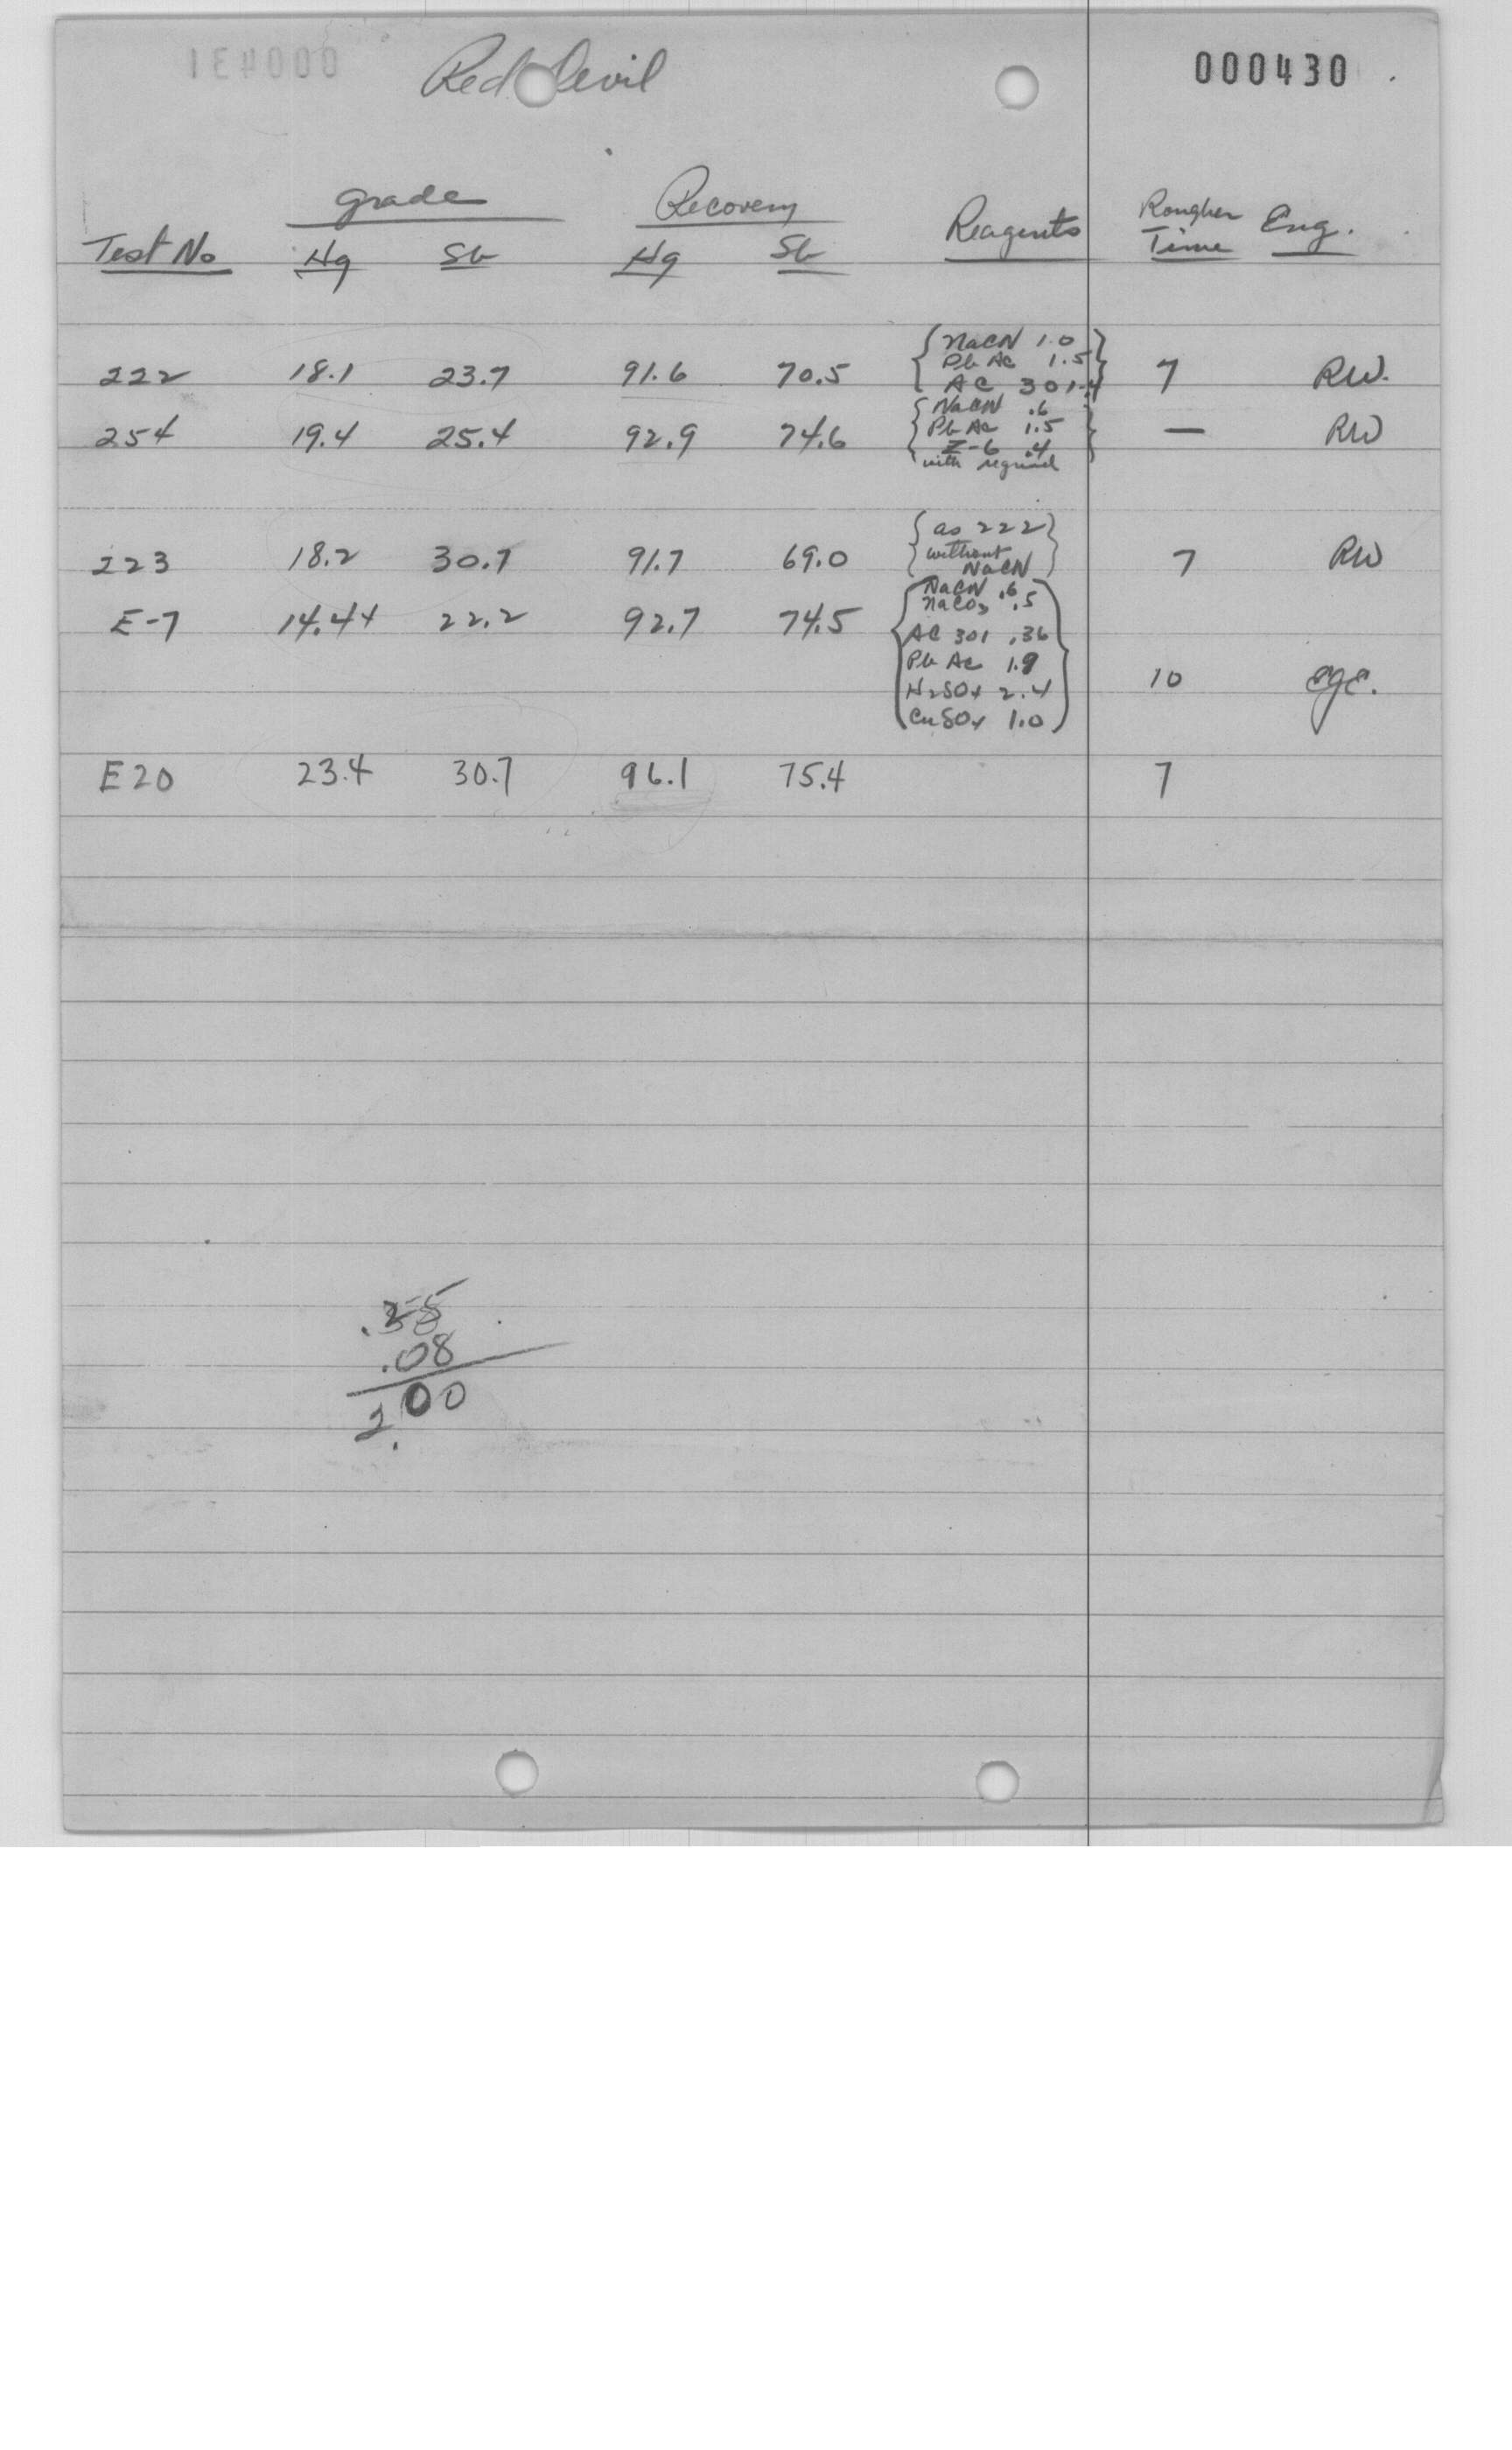 Red Devil 000430
grade Recovery Reagents Rougher Time Eng.
Test No Hg Sb Hg Sb
NaCN 1.0
Pb Ac 1.5
222 18.1 23.7 91.6 70.5 AC 301 .4 7 RW.
NaCN .6
254 19.4 25.4 92.9 74.6 Pb Ac 1.5 — RW
Z-6 .4
with regrind
as 222
223 18.2 30.7 91.7 69.0 without 7 RW
NaCN
NaCN .6
NaCO3 .5
E-7 14.44 22.2 92.7 74.5 AC 301 .36
Pb Ac 1.9
H2SO4 2.4 10 EGE.
CuSO4 1.0
E20 23.4 30.7 96.1 75.4 7
.08
2.00